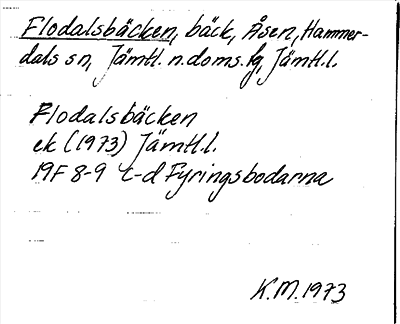 Flodalsbäcken, bäck, Åsen, Hammer-
dals sn, Jämtl. n. doms. lg, Jämtl.l.
Flodalsbäcken
ek (1973) Jämtl.l.
19F 8-9 c-d Fyringsbodarna
K.M. 1973